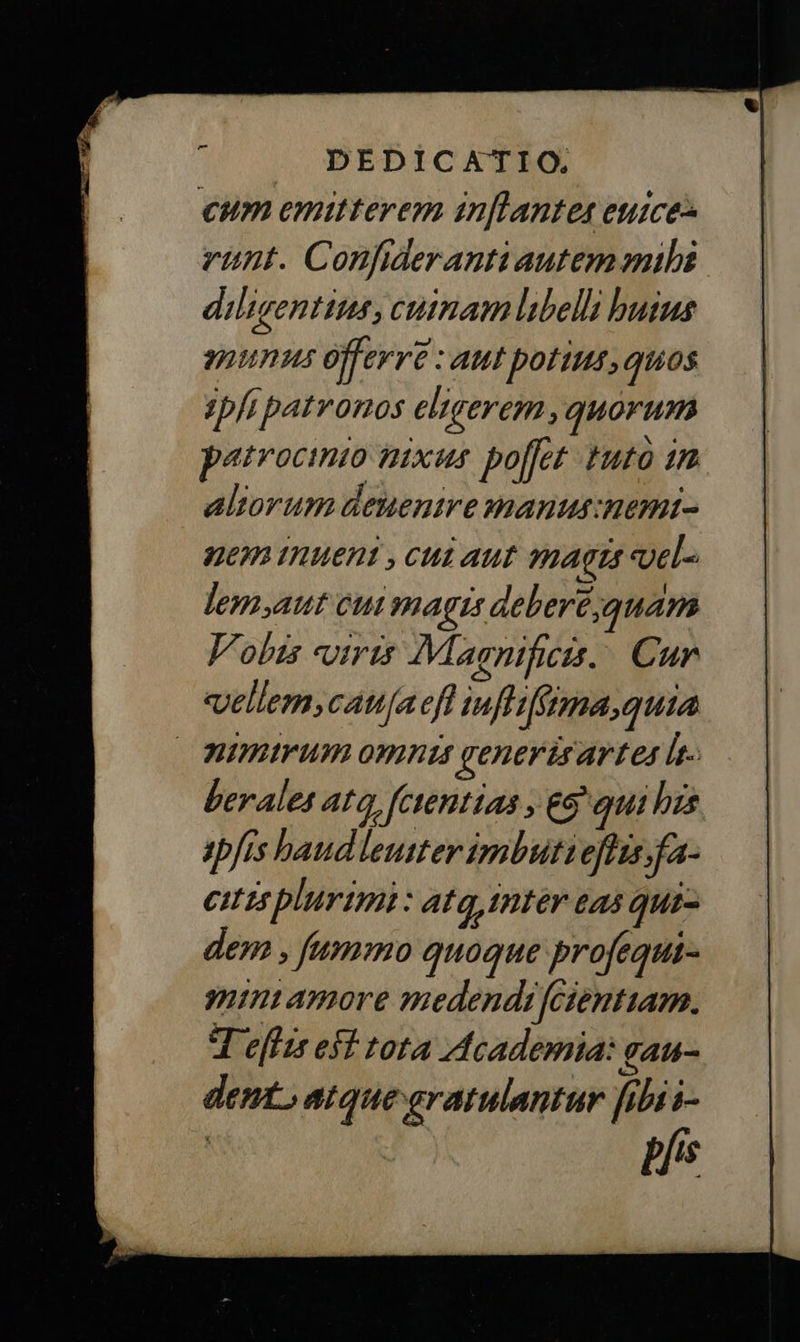 DEDICATIO.
cum emitterem inſtantes euice-
runt. Conſideranti autem mihi
diligentius, cuinam libelli huius
munus offerrē: aut potius, quos
ipſi patronos eligerem, quorum
patrocinio nixus poſſet tutò in
aliorum deuenire manus: nemi-
nem inueni, cui aut magis vel-
lem, aut cui magis deberē, quam
Vobis viris Magnificis. Cur
vellem, cauſa eſt iuſtiſsima, quia
nimirum omnis generis artes li-
berales atq; ſcientias, & qui his
ipſis haud leuiter imbuti eſtis, fa-
citis plurimi: atq; inter eas qui-
dem, ſummo quoque proſequi-
mini amore medendi ſcientiam.
Teſtis eſt tota Academia: gau-
dent, atque gratulantur ſibi i-
pſis